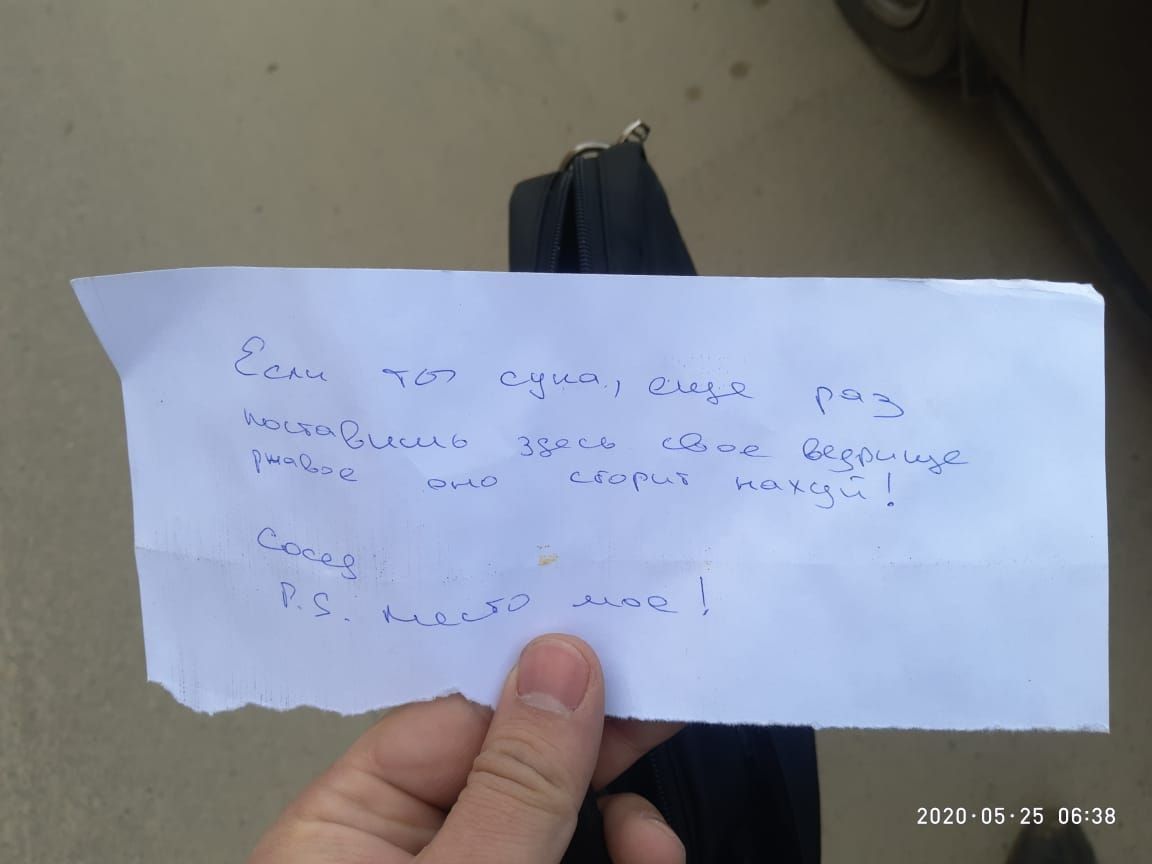 Если ты сука, еще раз
поставишь здесь свое ведрище
ржавое оно сгорит нахуй!
Сосед
P.S. место мое!
2020·05·25 06:38